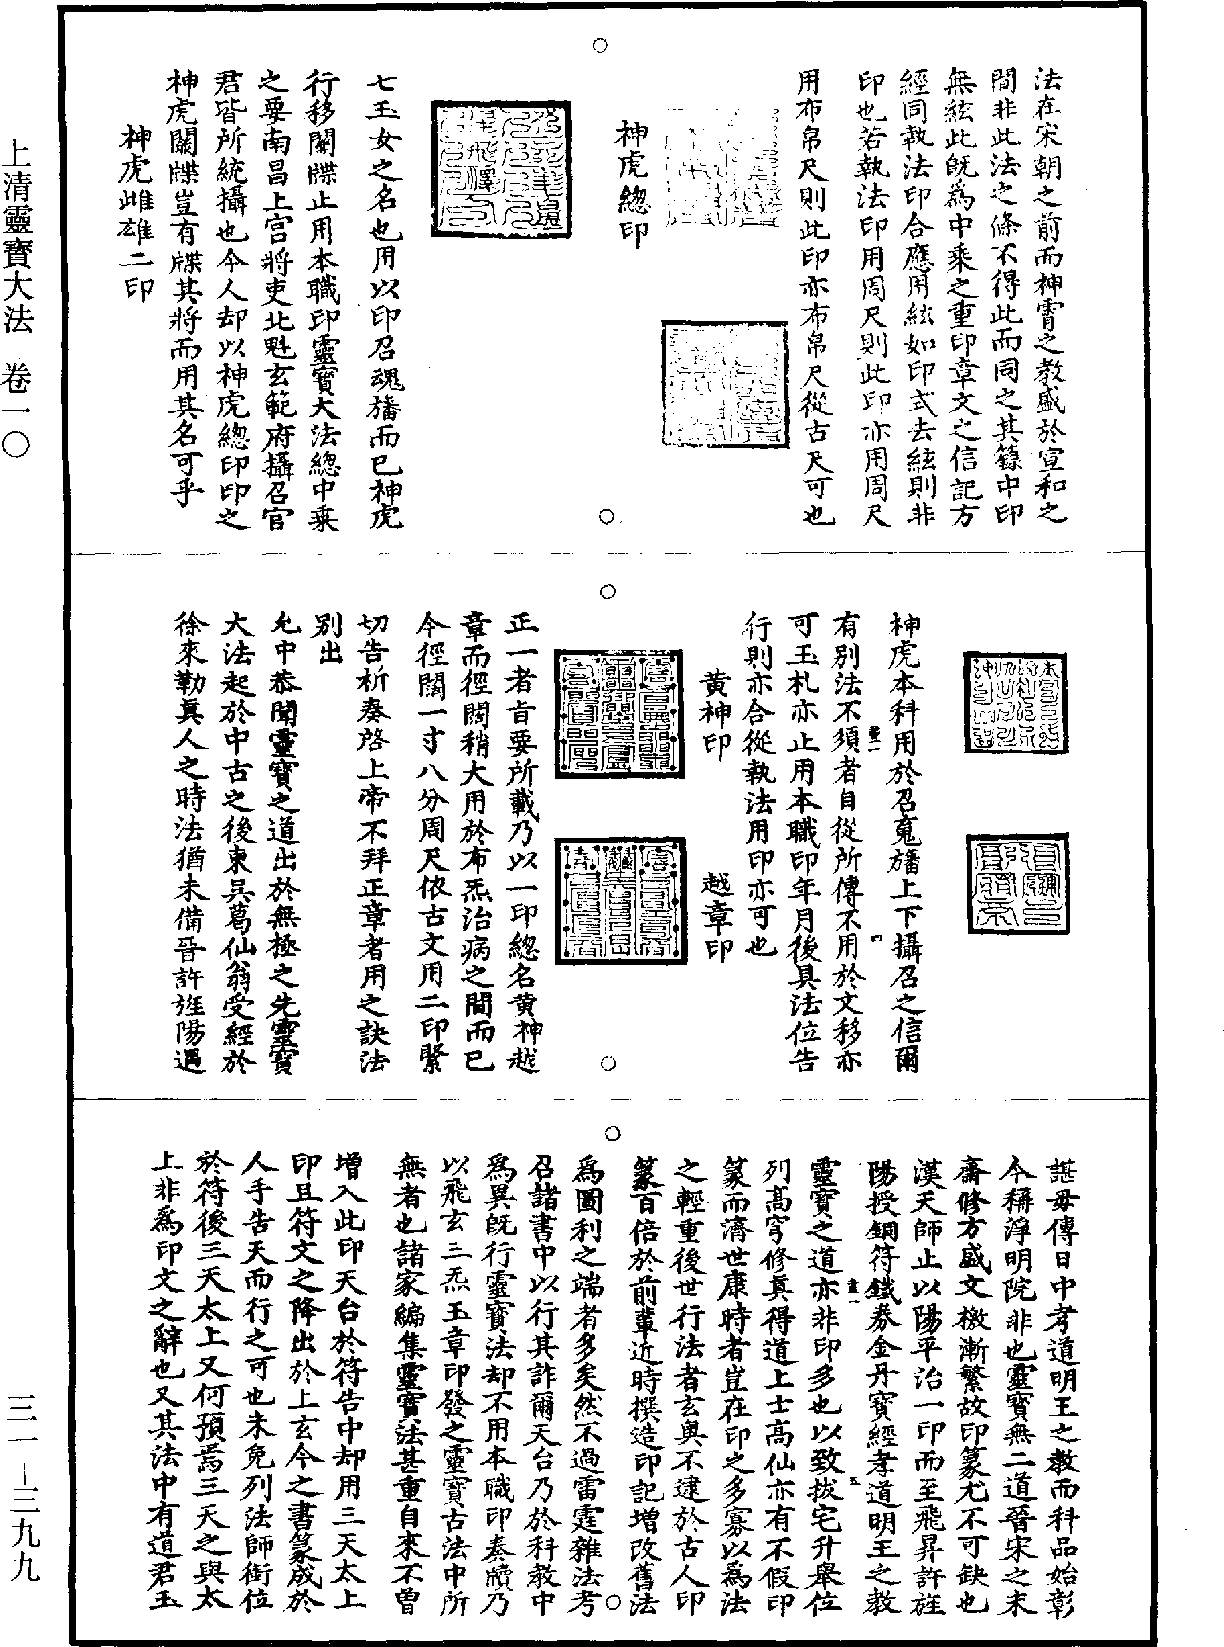 上清靈寶大法　卷一〇
三一－三九九
法在宋朝之前而神霄之教盛於宣和之
間非此法之條不得此而同之其籙中印
無絃此既為中乘之重印章文之信記方
經同執法印合應用絃如印式去絃則非
印也若執法印用周尺則此印亦用周尺
用布帛尺則此印亦布帛尺從古尺可也
神虎總印
七玉女之名也用以印召魂旛而已神虎
行移關牒止用本職印靈寶大法總中乘
之要南昌上宮將吏北魁玄範府攝召官
君皆所統攝也今人却以神虎總印印之
神虎關牒豈有牒其將而用其名可乎
神虎雌雄二印
神虎本科用於召寃旛上下攝召之信爾
有別法不須者自從所傳不用於文移亦
可玉札亦止用本職印年月後具法位告
行則亦合從執法用印亦可也
黃神印
越章印
正一者旨要所載乃以一印總名黃神越
章而徑闊稍大用於布炁治病之間而已
今徑闊一寸八分周尺依古文用二印緊
切告祈奏啓上帝不拜正章者用之訣法
別出
允中恭聞靈寶之道出於無極之先靈寶
大法起於中古之後東吳葛仙翁受經於
徐來勒真人之時法猶未備晉許旌陽遇
諶母傳日中孝道明王之教而科品始彰
今稱淨明院非也靈寶無二道晉宋之末
齋修方盛文檄漸繁故印篆尤不可缺也
漢天師止以陽平治一印而至飛昇許旌
陽授銅符鐵券金丹寶經孝道明王之教
靈寶之道亦非印多也以致拔宅升舉位
列高穹修真得道上士高仙亦有不假印
篆而濟世康時者豈在印之多寡以為法
之輕重後世行法者玄奧不逮於古人印
篆百倍於前輩近時撰造印記增改舊法
為圖利之端者多矣然不過雷霆雜法考
召諸書中以行其詐爾天台乃於科教中
為異既行靈寶法却不用本職印奏牘乃
以飛玄三炁玉章印發之靈寶古法中所
無者也諸家編集靈寶法甚重自來不曾
增入此印天台於符告中却用三天太上
印且符文之降出於上玄今之書篆成於
人手告天而行之可也未免列法師銜位
於符後三天太上又何預焉三天之與太
上非為印文之辭也又其法中有道君玉